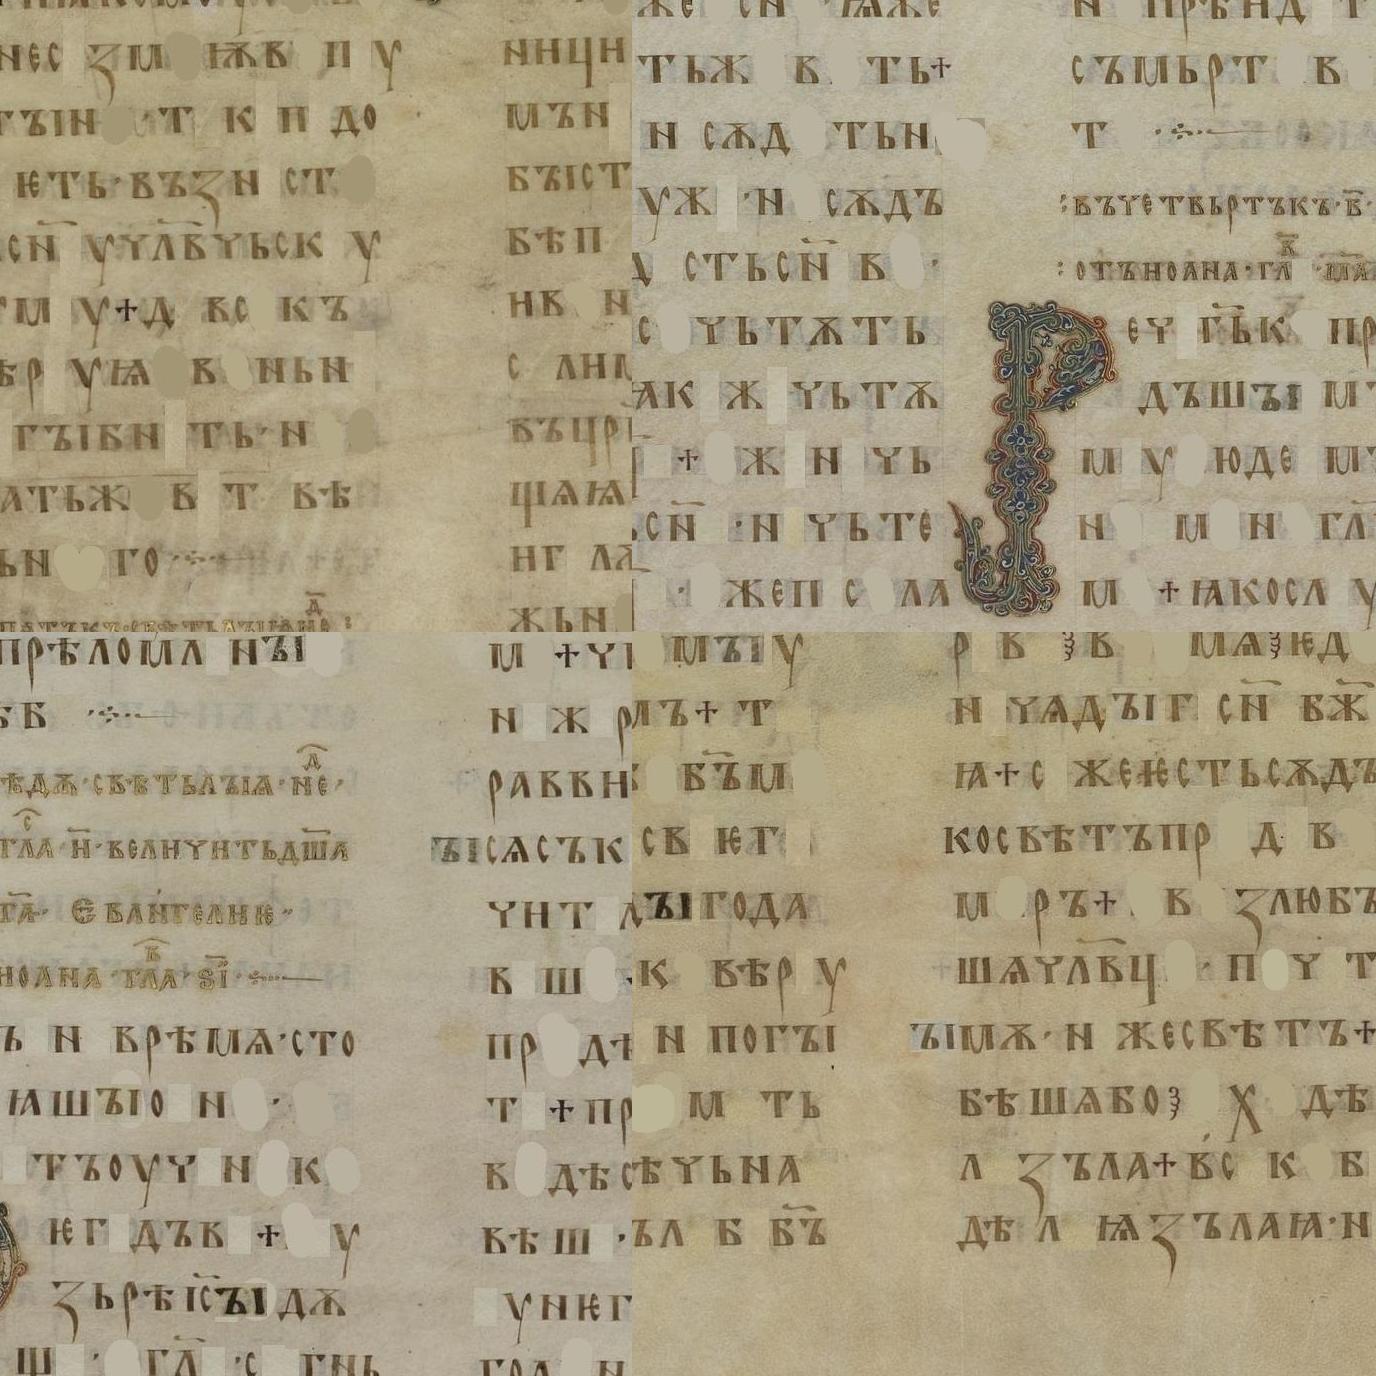 нес ꙁм ѭв п у
тъін т к п до
ѥть·въꙁн ст
сн҃ учл҃вчьск у
м у+д вс к ъ
ѣр уꙗ в ньн
гъівн ть·н
атьж в т вѣ
ьн го
ннцн
мън
бъіст
бѣп
нв н
с лнц
въцр
щѧꙗ
нг ла
жьн
тьж в ть+
н сѫд тьн
уж н сѫдъ
стьсн҃ в ·
с чьтѫть
ак ж чьтѫ
+ ж н чь
сн҃ ·н чьте
· жеп с ла
съмьрт в
т
:въчетвьртъкъ·в҃·
:отъноана·гл҃
Р еч гь҃к пр
дъшъі м
м у юде м
н м н гл҃
м +ꙗкосл у
прѣломл нъі
б
ѣдѫ·свѣтьлъіѧ·не·
гл҃а·н҃·велнчнтьдш҃а
га· Еван҃гелнѥ·
ноана гл҃а·ѕі҃
ъ н врѣмѧ·сто
ꙗшъіо н ·
тъоуч н к
ѥг дъв + у
ꙁьрѣ іс҃ъі дѫ
ш · гл҃ ·с гнь
м +ч
н ж р
раввн
ъісѧсък
чнт л
в ш
пр дѣ
т +пр
в дѣс
вѣш ·
учнѥг
мъіу
лъ+ т
бъ҃м
св ѥт
ъігода
к вѣр у
н погъі
м ть
ѣчьна
ъл б бъ҃
р в ꙁ в мѧꙁѥд
н чѧдъіг сн҃ бж҃
ꙗ+с жеѥстьсѫдъ
косвѣтъпр д в
м ръ+ в ꙁлюбъ
шѧчлв҃ц · п ч т
ъімѫ·н жесвѣтъ+
бѣшѧбоꙁ х дѣ
л ꙁъла+вс к б
дѣ л ꙗꙁълаꙗ·н